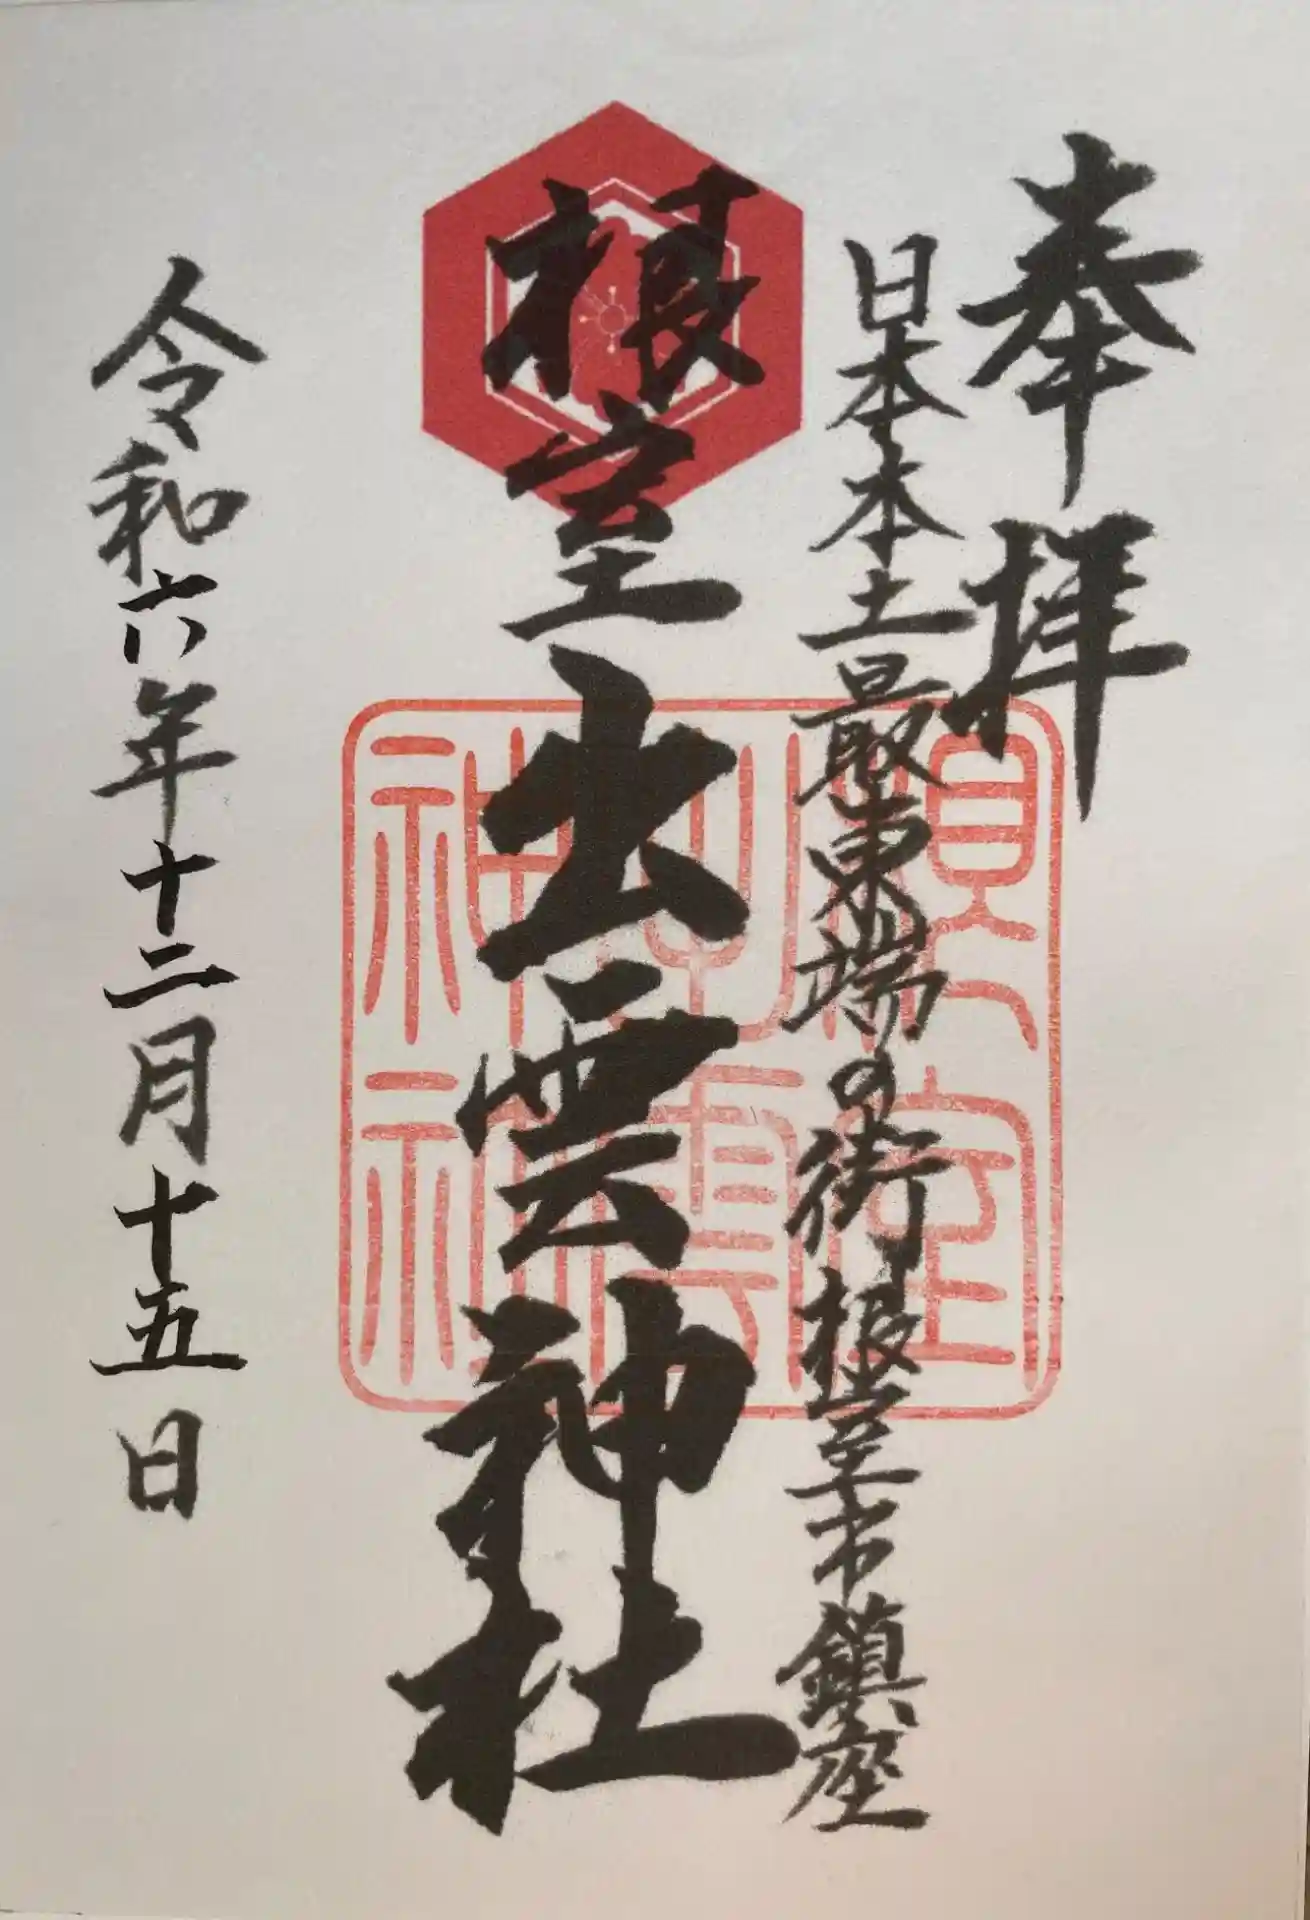 奉拝
日本本土最東端の街根室市鎮座
根室出雲神社
根室出雲神社
令和六年十二月十五日